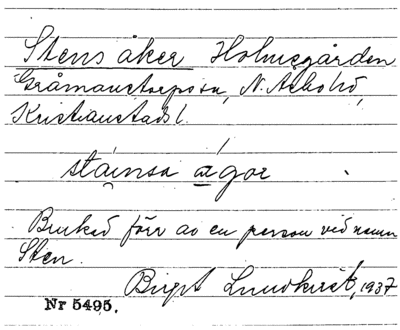 Stens åker Holmsgården
Gråmanstorps sn, N. Åsbo hd,
Kristianstads l.
stainsa ågor
Brukad förr av en person vid namn
Sten.
Birgit Lundkvist, 1937
Nr 5495.